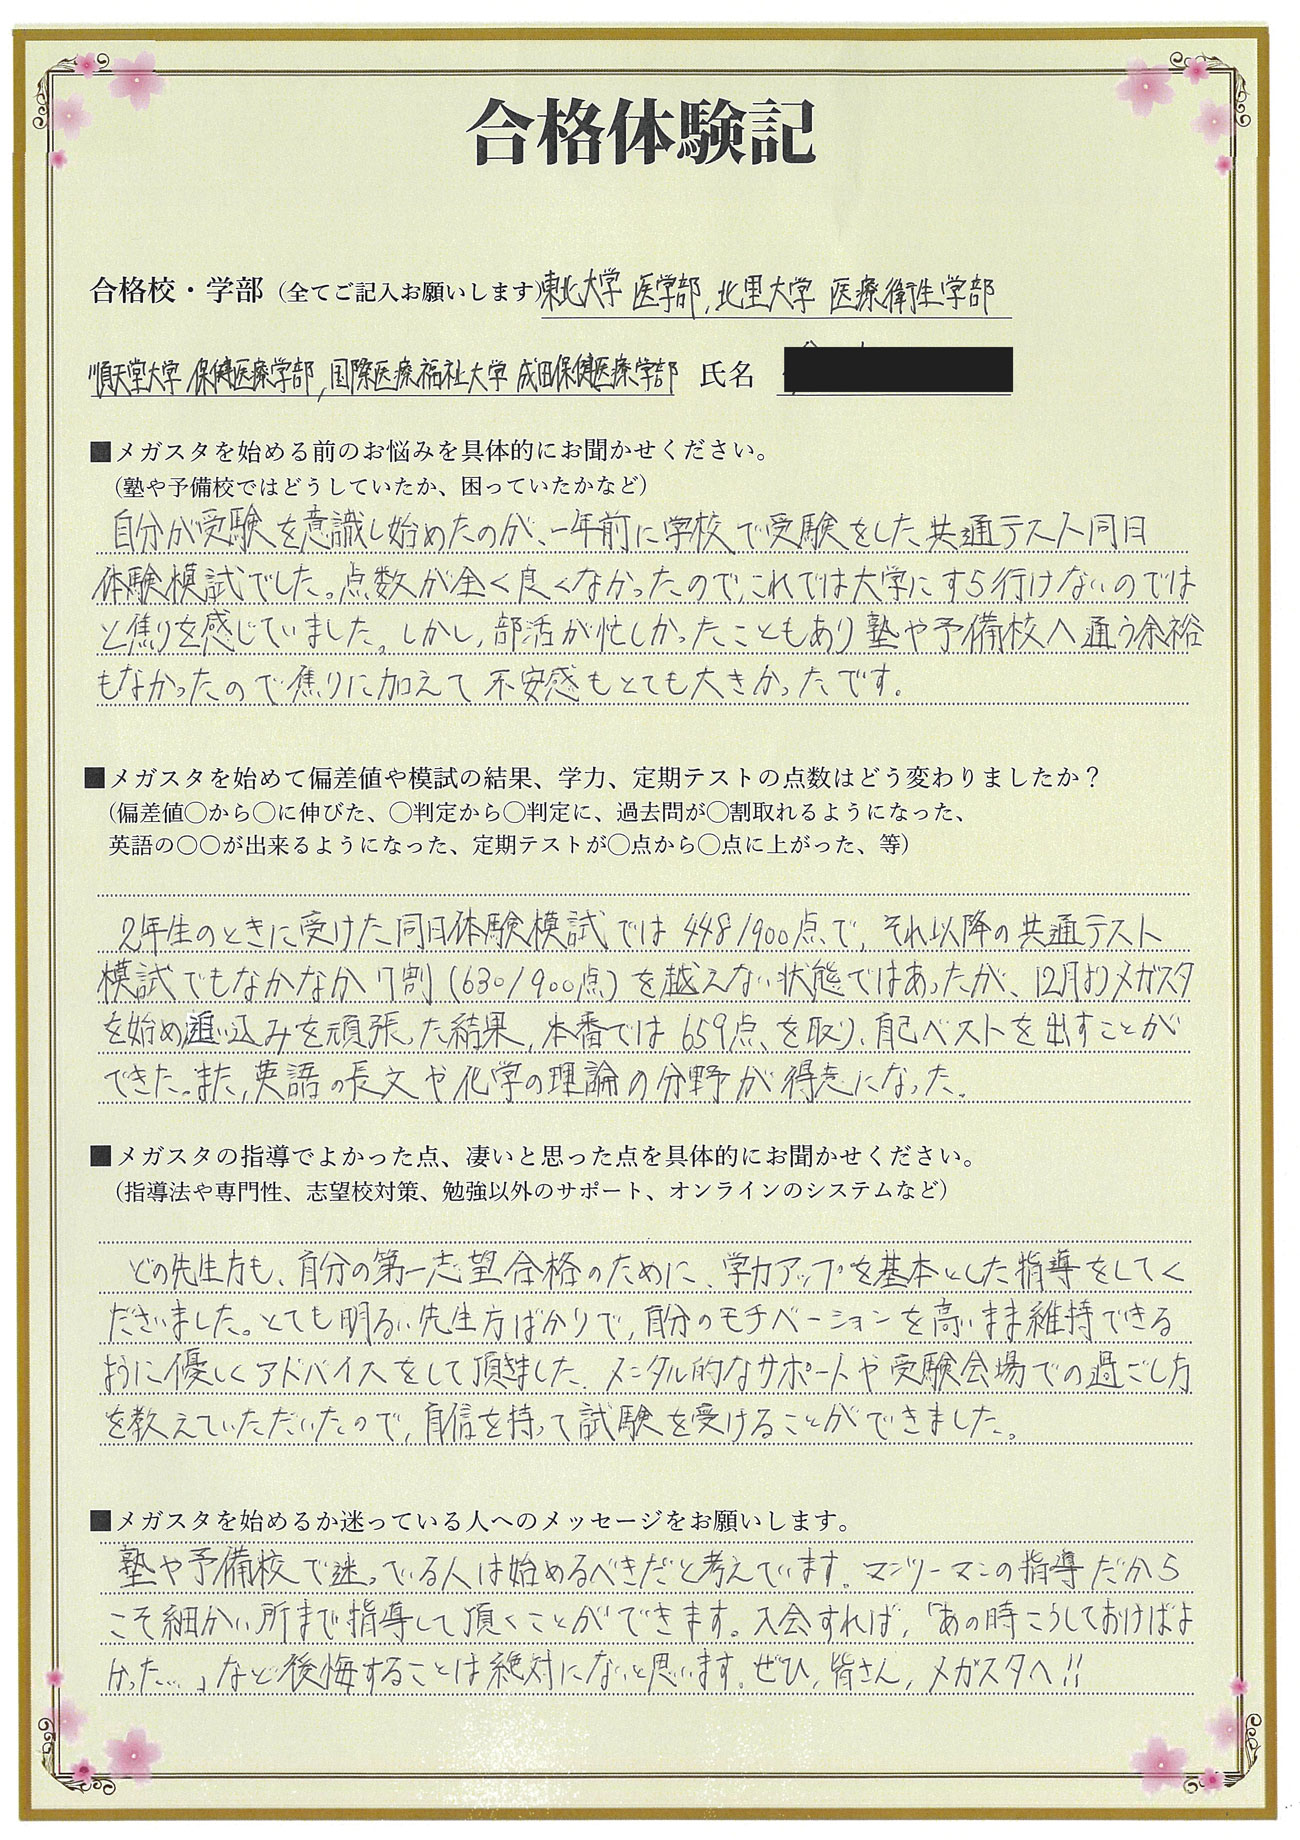 合格体験記
合格校・学部（全てご記入お願いします）東北大学 医学部, 北里大学 医療衛生学部
順天堂大学 保健医療学部, 国際医療福祉大学 成田保健医療学部 氏名
■メガスタを始める前のお悩みを具体的にお聞かせください。
（塾や予備校ではどうしていたか、困っていたかなど）
自分が受験を意識し始めたのが、一年前に学校で受験をした共通テスト同日
体験模試でした。点数が全く良くなかったので、これでは大学にすら行けないのでは
と焦りを感じていました。しかし, 部活が忙しかったこともあり塾や予備校へ通う余裕
もなかったので焦りに加えて不安感もとても大きかったです。
■メガスタを始めて偏差値や模試の結果、学力、定期テストの点数はどう変わりましたか？
（偏差値〇から〇に伸びた、〇判定から〇判定に、過去問が〇割取れるようになった、
英語の〇〇が出来るようになった、定期テストが〇点から〇点に上がった、等）
2年生のときに受けた同日体験模試では448/900点で, それ以降の共通テスト
模試でもなかなか7割(630/900点)を越えない状態ではあったが、12月よりメガスタ
を始め追い込みを頑張った結果, 本番では659点を取り、自己ベストを出すことが
できた。また, 英語の長文や化学の理論の分野が得意になった。
■メガスタの指導でよかった点、凄いと思った点を具体的にお聞かせください。
（指導法や専門性、志望校対策、勉強以外のサポート、オンラインのシステムなど）
どの先生方も、自分の第一志望合格のために、学力アップを基本とした指導をしてく
ださいました。とても明るい先生方ばかりで, 自分のモチベーションを高いまま維持できる
ように優しくアドバイスをして頂きました。メンタル的なサポートや受験会場での過ごし方
を教えていただいたので, 自信を持って試験を受けることができました。
■メガスタを始めるか迷っている人へのメッセージをお願いします。
塾や予備校で迷っている人は始めるべきだと考えています。マンツーマンの指導だから
こそ細かい所まで指導して頂くことができます。入会すれば, 「あの時こうしておけばよ
かった…」など後悔することは絶対にないと思います。ぜひ, 皆さん, メガスタへ!!